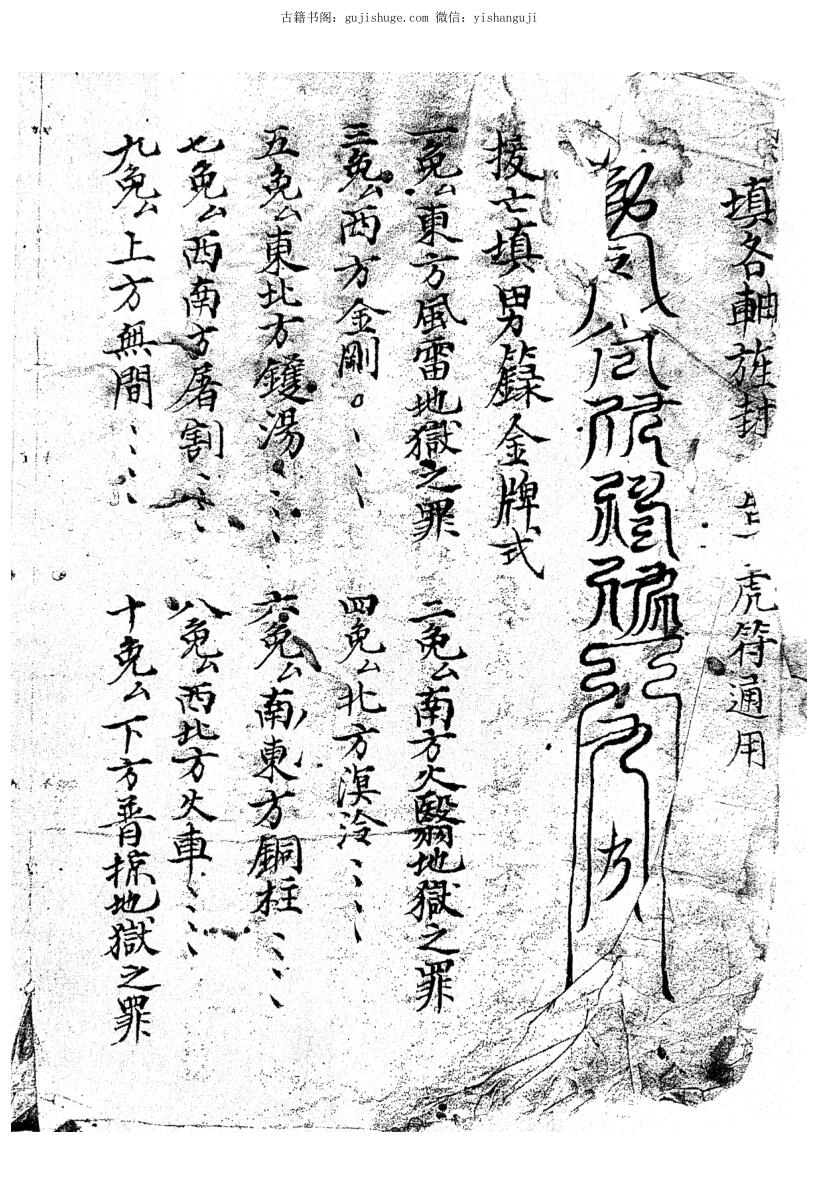 古籍书阁：gujishuge.com 微信：yishanguji
填各軸旌封 虎符通用
拔亡填男籙金牌式
一免厶東方風雷地獄之罪 二免厶南方火翳地獄之罪
三免厶西方金剛。、、、 四免厶北方溟泠、、、、
五免厶東北方鑊湯、、、、 六免厶南東方銅柱、、、、
七免厶西南方屠割、、、 八免厶西北方火車、、、、
九免厶上方無間、、、、 十免厶下方普掠地獄之罪